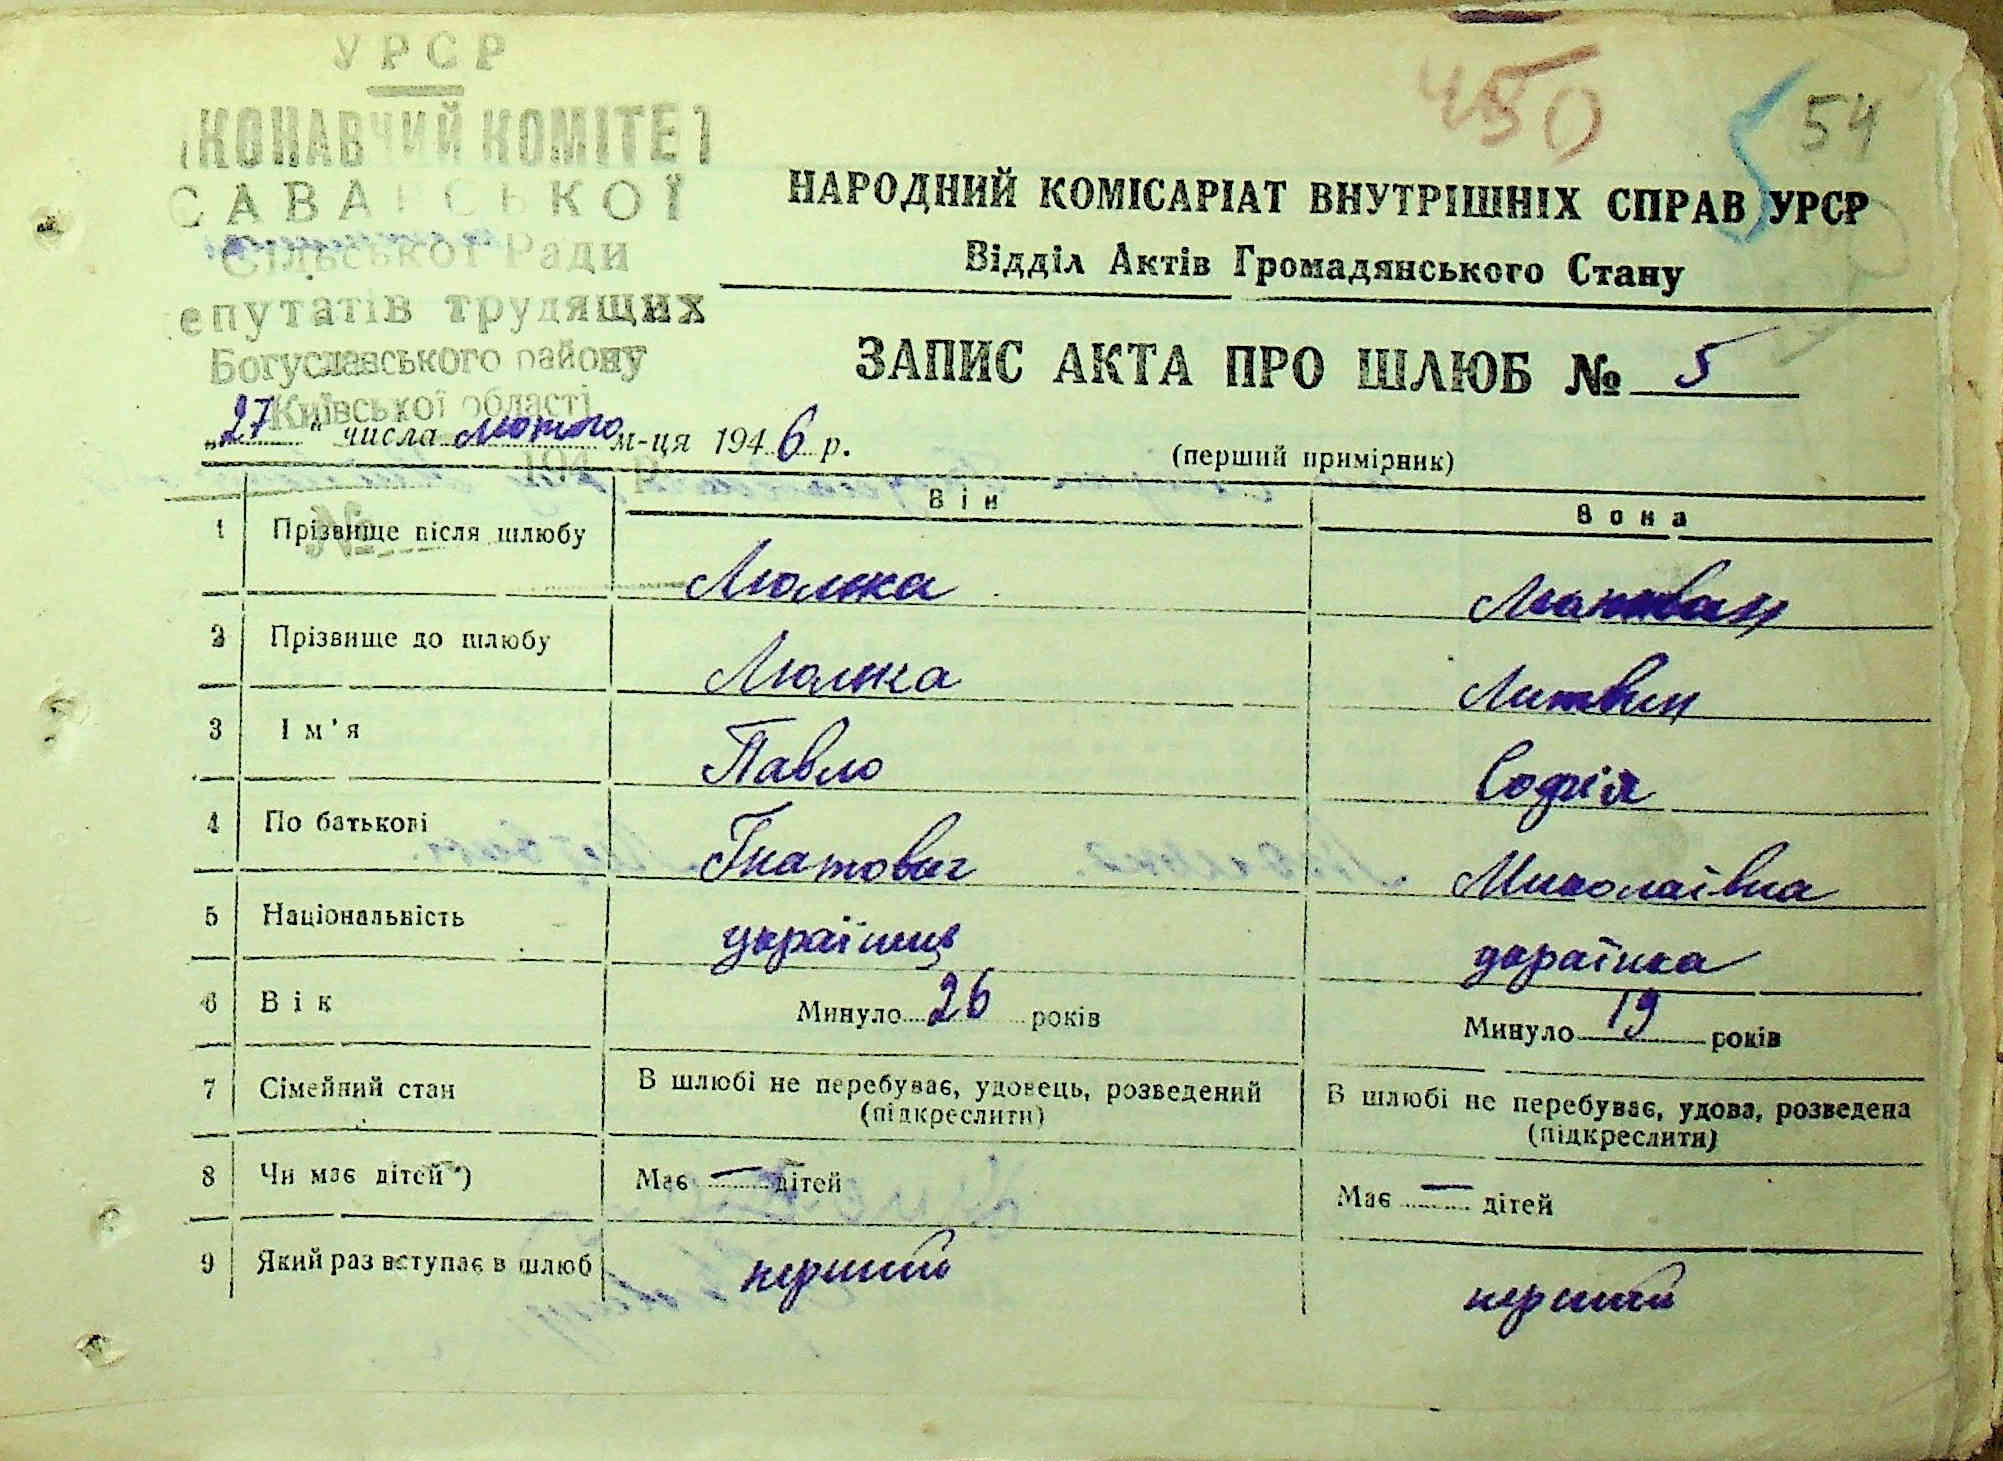 УРСР
КОНАВЧИЙ КОМІТЕТ
САВАРСЬКОЇ
Сільської Ради
епутатів трудящих
Богуславського району
Київської області
194 р.
№
450
54
НАРОДНИЙ КОМІСАРІАТ ВНУТРІШНІХ СПРАВ УРСР
Відділ Актів Громадянського Стану
ЗАПИС АКТА ПРО ШЛЮБ № 5
„27“ числа лютого м-ця 1946 р.
(перший примірник)
Він Вона
1 Прізвище після шлюбу Люлька
2 Прізвище до шлюбу Люлька Литвин
3 Ім'я Павло Софія
4 По батькові Гнатович Миколаївна
5 Національність українець українка
6 Вік Минуло 26 років Минуло 19 років
7 Сімейний стан В шлюбі не перебуває, удовець, розведений (підкреслити) В шлюбі не перебуває, удова, розведена (підкреслити)
8 Чи має дітей*) Має — дітей Має — дітей
9 Який раз вступає в шлюб перший перший